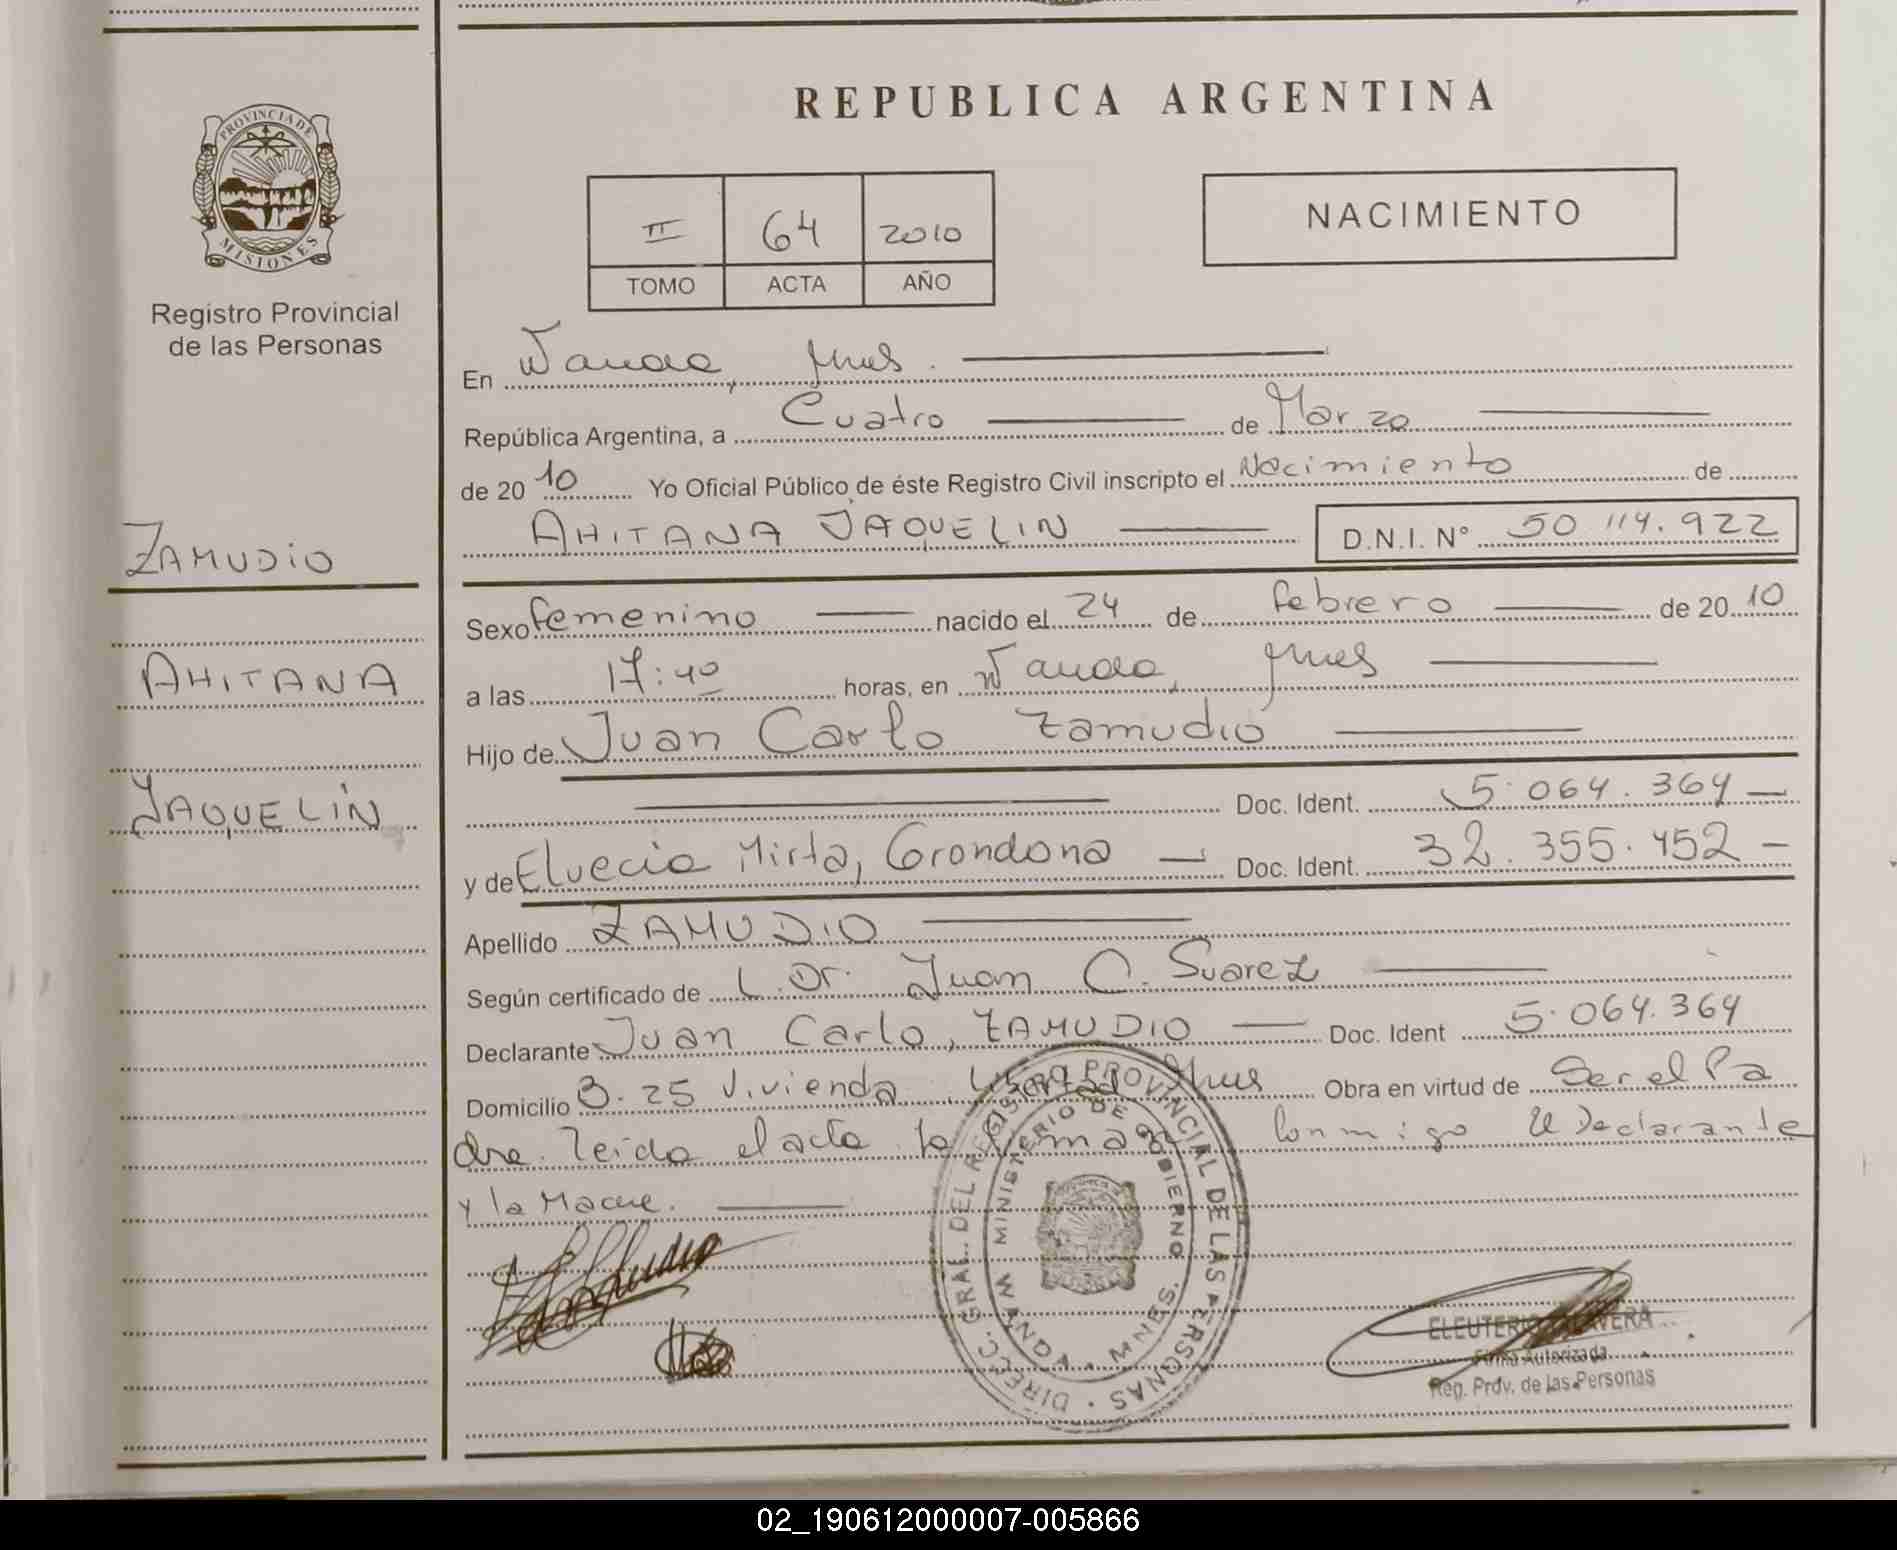 PROVINCIA DE
MISIONES
Registro Provincial
de las Personas
ZAMUDIO
AHITANA
JAQUELIN
REPUBLICA ARGENTINA
II 64 2010
TOMO ACTA AÑO
NACIMIENTO
En Wanda, Mnes.
República Argentina, a Cuatro de Marzo
de 20 10 Yo Oficial Público de éste Registro Civil inscripto el Nacimiento de
AHITANA JAQUELIN D.N.I. N° 50.114.922
Sexo femenino nacido el 24 de febrero de 20 10
a las 17:40 horas, en Wanda, Mnes
Hijo de Juan Carlo Zamudio
Doc. Ident. 5.064.364
y de Elvecia Mirta, Grondona Doc. Ident. 32.355.452
Apellido ZAMUDIO
Según certificado de Dr. Juan C. Suarez
Declarante Juan Carlo, ZAMUDIO Doc. Ident 5.064.364
Domicilio B. 25 Vivienda, Libertad Mnes Obra en virtud de Ser el Pa
dre. Leida el acta la firman Conmigo el Declarante
y la Madre.
DIREC. GRAL. DEL REGISTRO PROVINCIAL DE LAS PERSONAS
MINISTERIO DE GOBIERNO
WANDA - MNES.
ELEUTERIO TALAVERA
Firma Autorizada
Reg. Prov. de las Personas
02_190612000007-005866